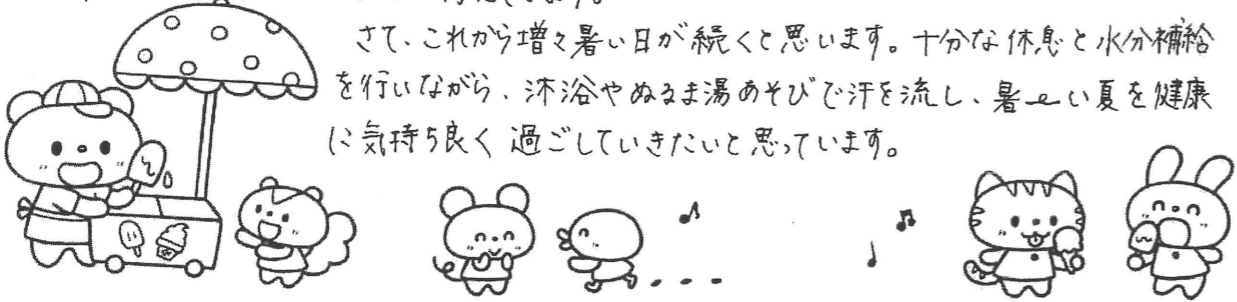 さて、これから増々暑い日が続くと思います。十分な休息と水分補給
を行いながら、沐浴やぬるま湯あそびで汗を流し、暑~い夏を健康
に気持ち良く過ごしていきたいと思っています。